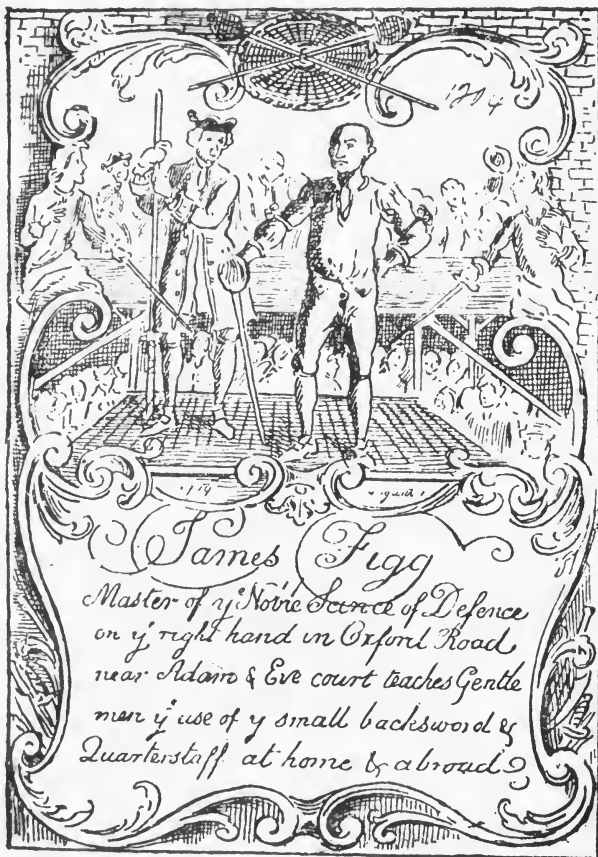 1794
James Figg
Master of yͤ Nov'ie Scince of Defence
on yͤ right hand in Oxford Road
near Adam & Eve court teaches Gentle
men yͤ use of y small backsword &
Quarterstaff at home & abroad